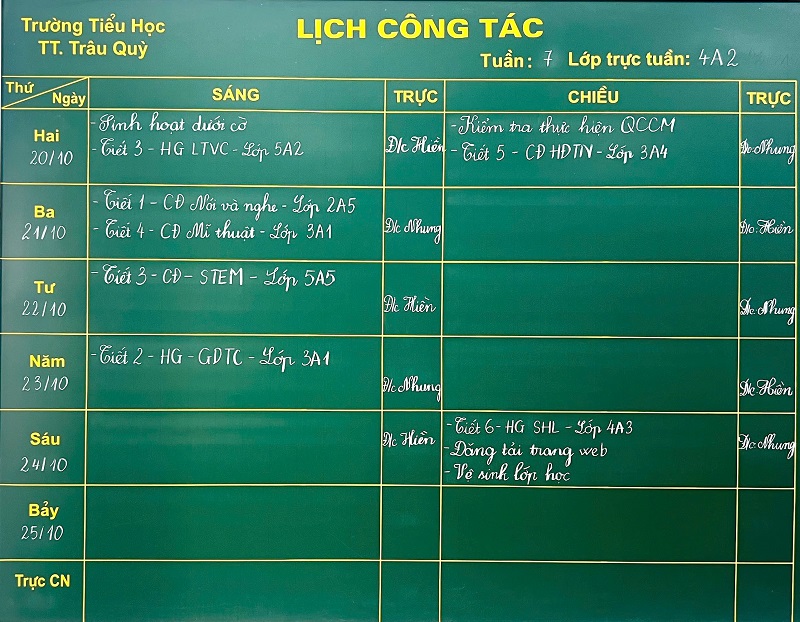 Trường Tiểu Học
TT. Trâu Quỳ
LỊCH CÔNG TÁC
Tuần: 7 Lớp trực tuần: 4A2
Thứ
Ngày
SÁNG
TRỰC
CHIỀU
TRỰC
Hai
20/10
- Sinh hoạt dưới cờ
- Tiết 3 - HG LTVC - Lớp 5A2
Đ/c Hiền
- Kiểm tra thực hiện QCCM
- Tiết 5 - CĐ HĐTN - Lớp 3A4
Đ/c Nhung
Ba
21/10
- Tiết 1 - CĐ Nói và nghe - Lớp 2A5
- Tiết 4 - CĐ Mĩ thuật - Lớp 3A1
Đ/c Nhung
Đ/c Hiền
Tư
22/10
- Tiết 3 - CĐ - STEM - Lớp 5A5
Đ/c Hiền
Đ/c Nhung
Năm
23/10
- Tiết 2 - HG - GDTC - Lớp 3A1
Đ/c Nhung
Đ/c Hiền
Sáu
24/10
Đ/c Hiền
- Tiết 6 - HG SHL - Lớp 4A3
- Đăng tải trang web
- Vệ sinh lớp học
Đ/c Nhung
Bảy
25/10
Trực CN